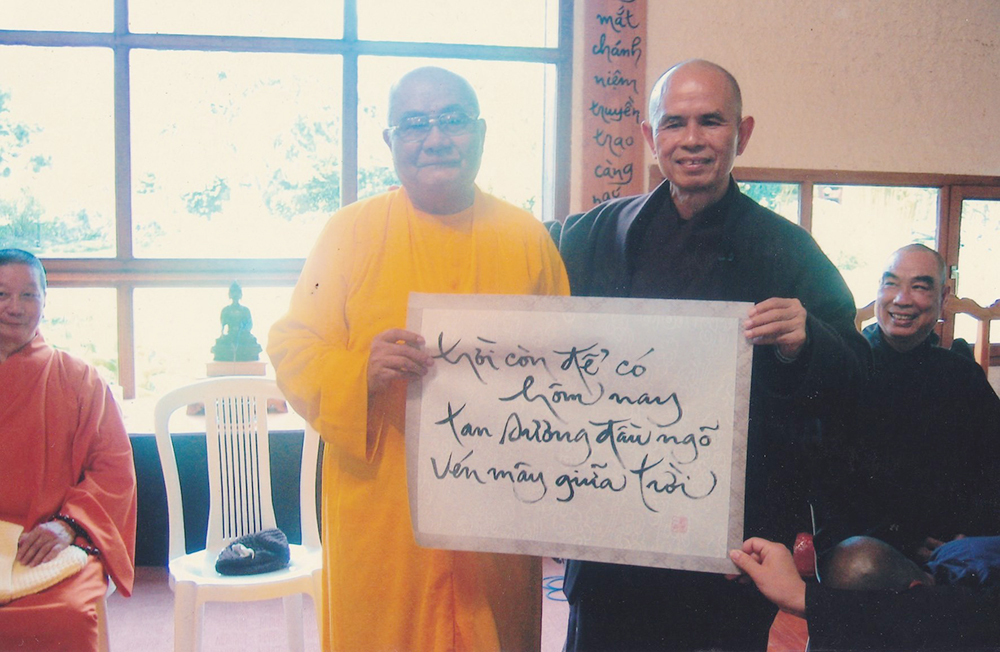 mắt
chánh
niệm
truyền
trao
càng
trời còn để có
hôm nay
tan sương đầu ngõ
vén mây giữa trời